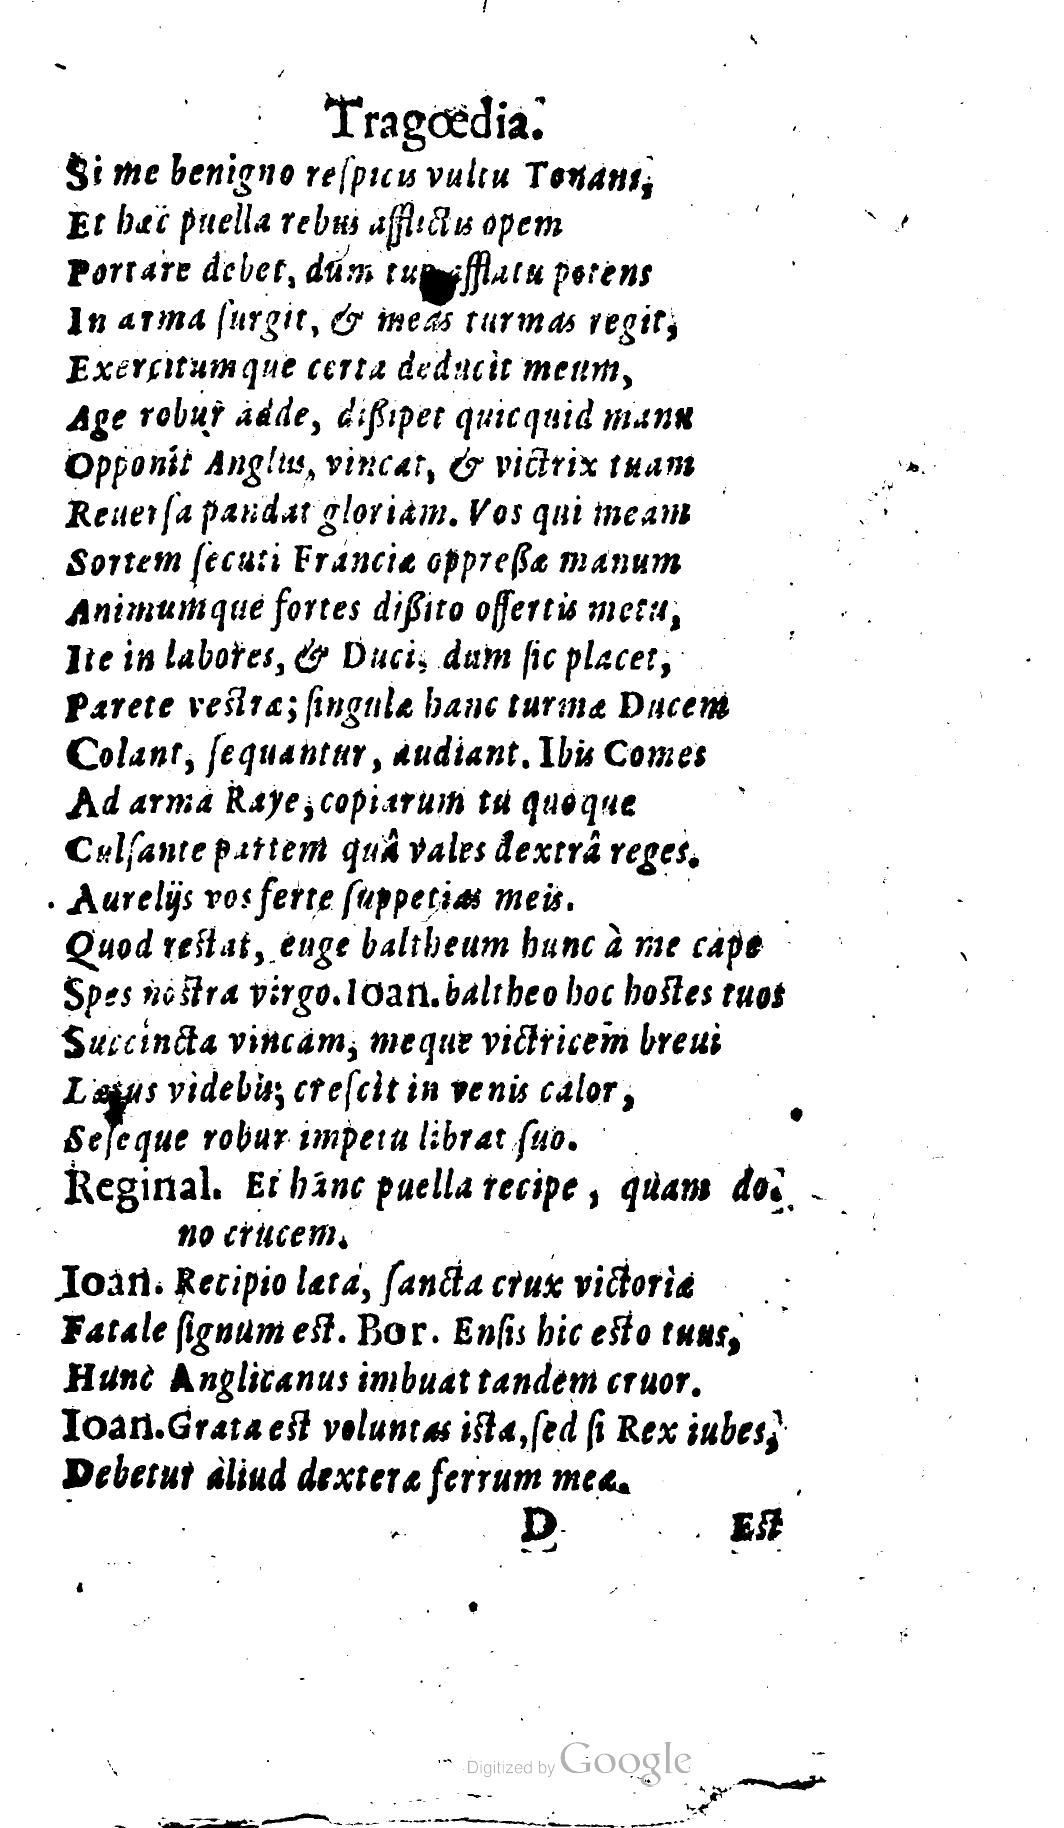 Tragœdia.
Si me benigno reſpicis vultu Tonans,
Et hæc puella rebus afflictis opem
Portare debet, dum tuo afflatu potens
In arma ſurgit, & meas turmas regit,
Exercitumque certa deducit meum,
Age robur adde, dißipet quicquid manu
Opponit Anglus, vincat, & victrix tuam
Reuerſa pandat gloriam. Vos qui meam
Sortem ſecuti Franciæ oppreßæ manum
Animumque fortes dißito offertis metu,
Ite in labores, & Duci, dum ſic placet,
Parete vestræ; ſingulæ hanc turmæ Ducem
Colant, ſequantur, audiant. Ibis Comes
Ad arma Raye, copiarum tu quoque
Culſante partem quâ vales dextrâ reges.
Aurelijs vos ferte ſuppetias meis.
Quod restat, euge baltheum hunc à me cape
Spes nostra virgo. Ioan. baltheo hoc hostes tuos
Succincta vincam, meque victricem breui
Lætus videbis; creſcit in venis calor,
Seſeque robur impetu librat ſuo.
Reginal. Et hanc puella recipe, quam do-
no crucem.
Ioan. Recipio læta, ſancta crux victoriæ
Fatale ſignum est. Bor. Enſis hic esto tuus,
Hunc Anglicanus imbuat tandem cruor.
Ioan. Grata est voluntas ista, ſed ſi Rex iubes,
Debetur aliud dexteræ ferrum meæ.
D Est
Digitized by Google